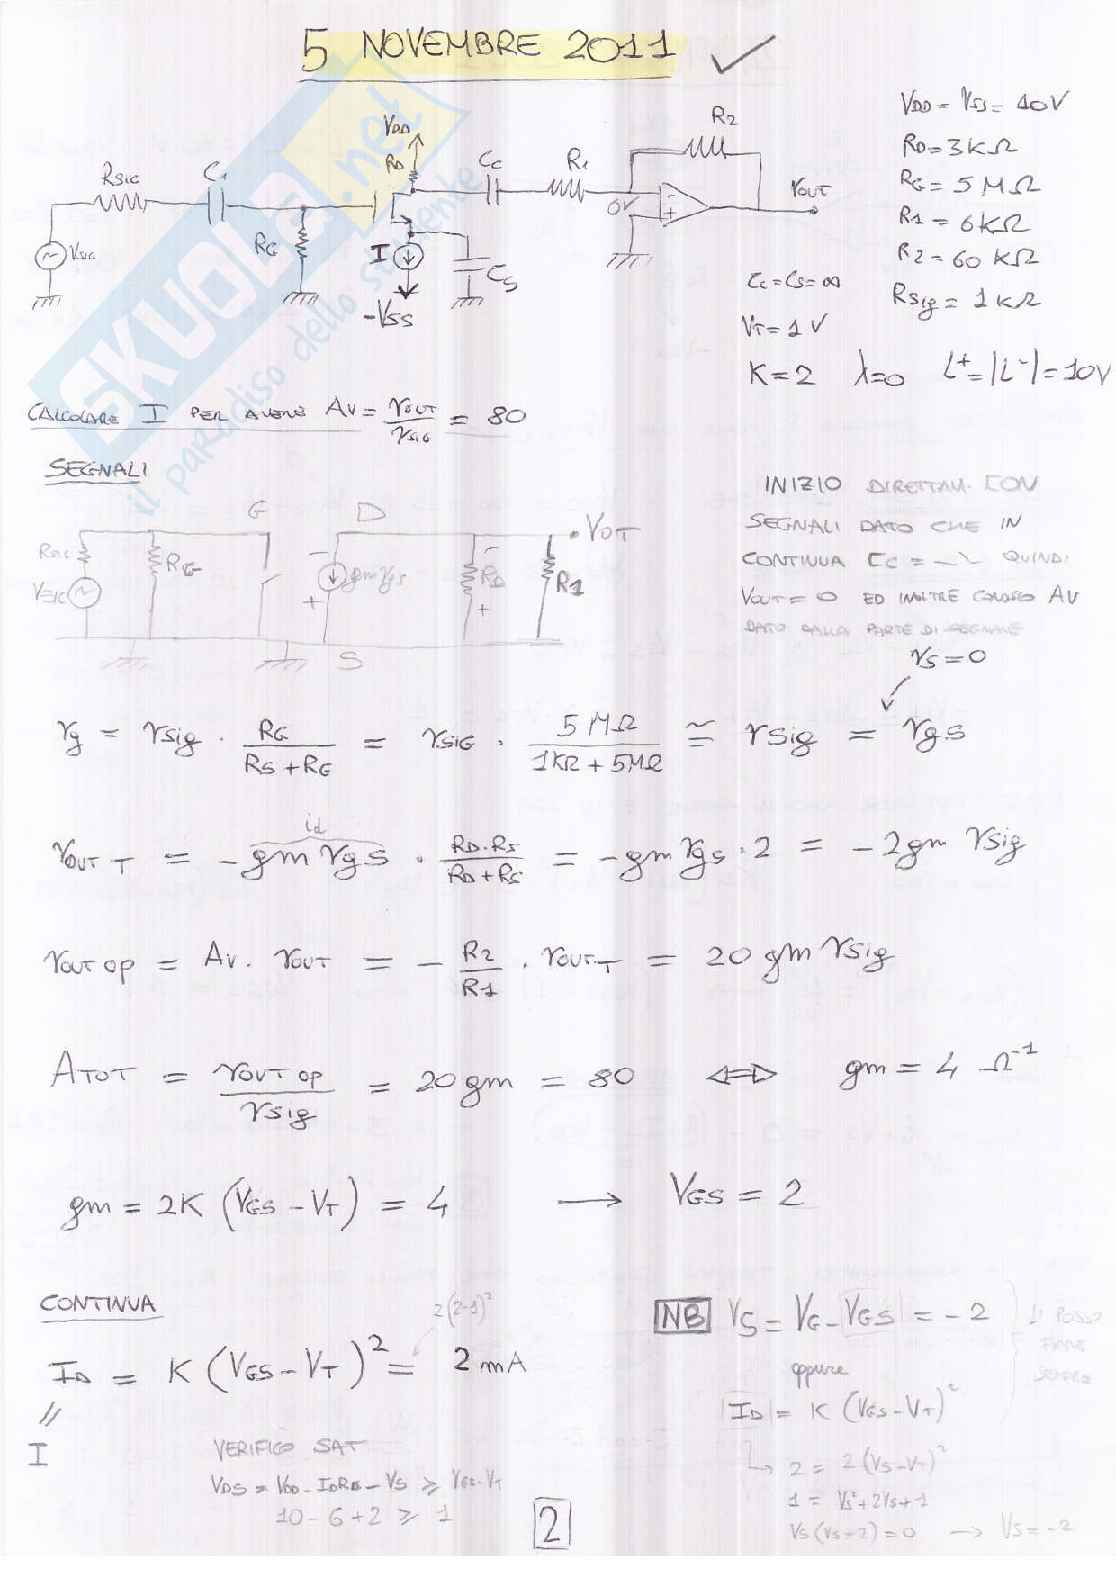 5 NOVEMBRE 2011 ✓
VDD = VSS = 10V
RD = 3KΩ
RG = 5 MΩ
R1 = 6KΩ
R2 = 60 KΩ
Rsig = 1KΩ
CC = CS = ∞
VT = 1 V
K = 2 λ=0 L+ = |L-| = 10V
RSIG
C1
RG
VSIG
VDD
RD
I
-VSS
CS
CC
R1
R2
0V
VOUT
SKUOLA.net
il paradiso dello studente
CALCOLARE I PER AVERE AV = VOUT/VSIG = 80
SEGNALI
G D VOT
RSIG
VSIG
RG
gmVgs
RD
R1
S
INIZIO DIRETTAM. CON
SEGNALI DATO CHE IN
CONTINUA CC = QUINDI
VOUT = 0 ED INOLTRE CONOSCO AV
DATO DALLA PARTE DI SEGNALE
VS = 0
Vg = Vsig · RG/(RS + RG) = VSIG · 5 MΩ/(1KΩ + 5MΩ) ≅ Vsig = Vgs
id
VOUT T = - gm Vgs · RD·RS/(RD+RS) = - gm Vgs · 2 = - 2gm Vsig
VOUT OP = AV · VOUT = - R2/R1 · VOUT T = 20 gm Vsig
ATOT = VOUT OP/Vsig = 20 gm = 80 ⟺ gm = 4 Ω⁻¹
gm = 2K (VGS - VT) = 4 → VGS = 2
CONTINUA
2(2-1)²
ID = K (VGS - VT)² = 2 mA
//
I
VERIFICO SAT
VDS = VDD - IDRD - VS ≥ VGS - VT
10 - 6 + 2 ≥ 1
NB VS = VG - VGS = -2
LI POSSO
FARE
SEMPRE
oppure
ID = K (VGS - VT)²
↳ 2 = 2(VS - VT)²
1 = VS² + 2VS + 1
VS (VS+2) = 0 → VS = -2
2